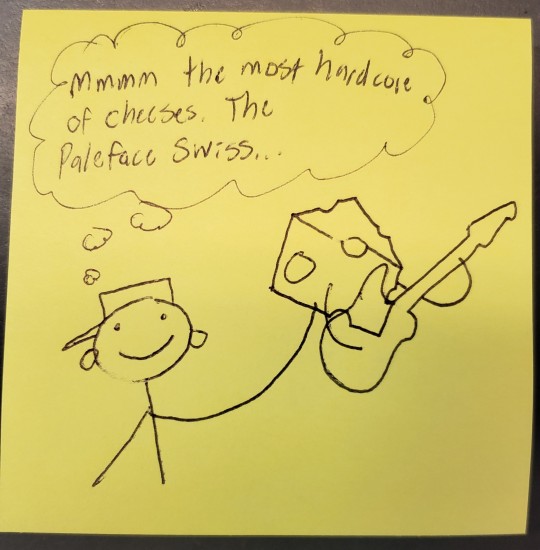 Mmmm the most hardcore
of cheeses. The
Paleface Swiss...